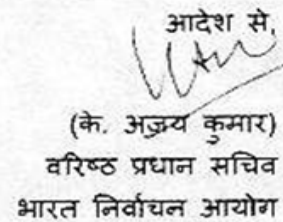 आदेश से,
(के. अजय कुमार)
वरिष्ठ प्रधान सचिव
भारत निर्वाचन आयोग